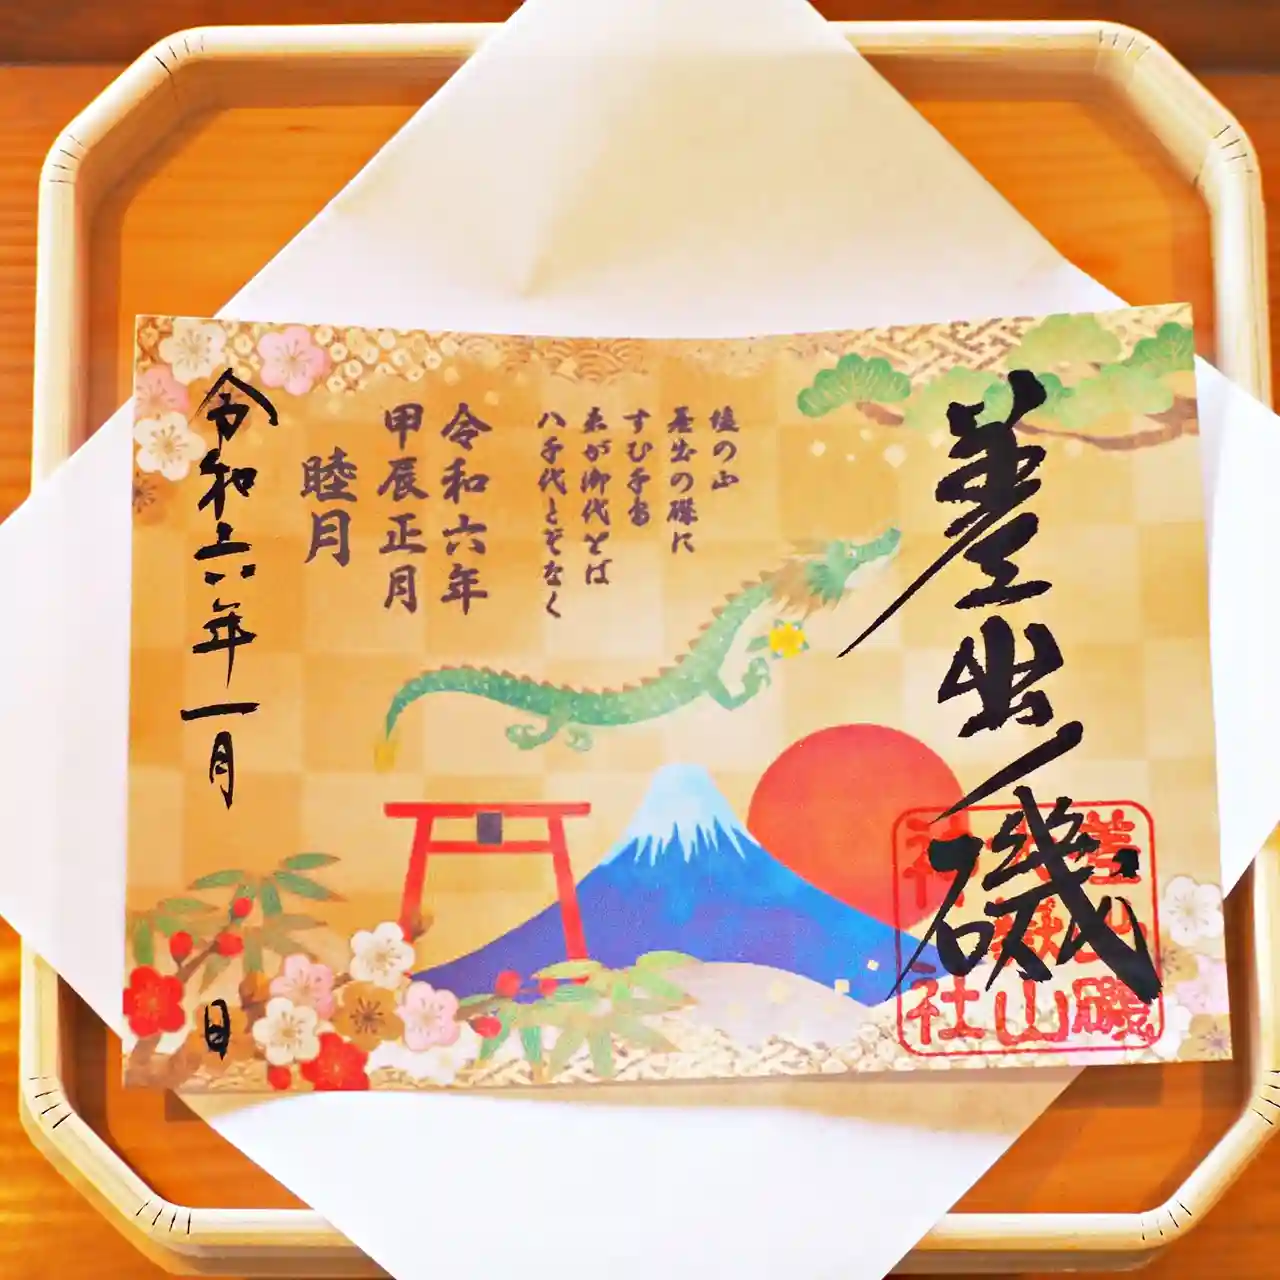 差出ノ磯
塩の山
差出の磯に
すむ千鳥
君が御代をば
八千代とぞなく
令和六年
甲辰正月
睦月
令和六年一月 日
差出磯
大嶽山
神社